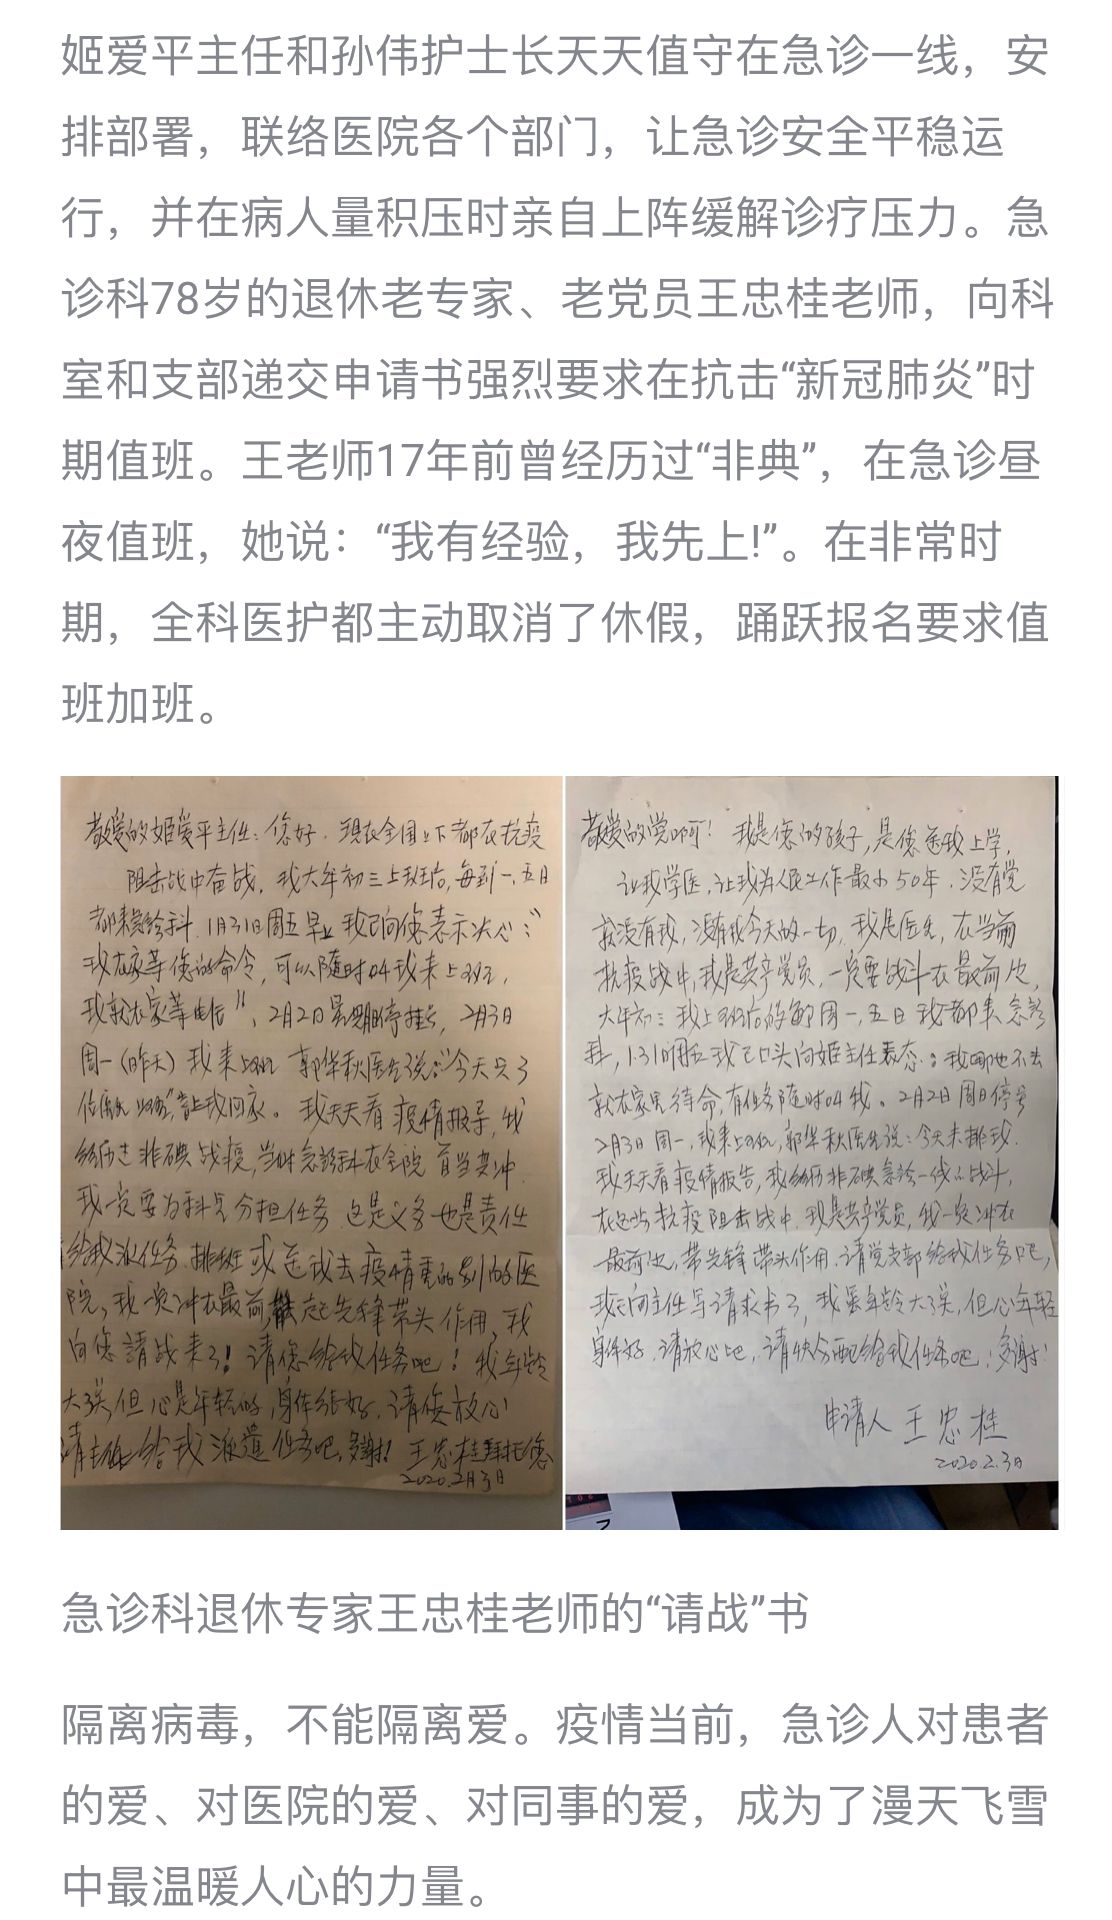 姬爱平主任和孙伟护士长天天值守在急诊一线，安
排部署，联络医院各个部门，让急诊安全平稳运
行，并在病人量积压时亲自上阵缓解诊疗压力。急
诊科78岁的退休老专家、老党员王忠桂老师，向科
室和支部递交申请书强烈要求在抗击“新冠肺炎”时
期值班。王老师17年前曾经历过“非典”，在急诊昼
夜值班，她说：“我有经验，我先上!”。在非常时
期，全科医护都主动取消了休假，踊跃报名要求值
班加班。
敬爱的姬爱平主任：您好．现在全国上下都在抗疫
阻击战中奋战，我大年初三上班后，每到一、五日
都来急诊科．1月31日周五早上我已向您表示决心：“
我在家等您的命令，可以随时叫我来上班，
我就在家等电话”，2月2日星期日停挂号，2月3日
周一（昨天）我来上班 郭华秋医生说：“今天只3
位病人 ”让我回家。我天天看疫情报导，我
经历过非典战疫，当时急诊科在全院首当其冲．
我一定要为科里分担任务．这是义务也是责任
给我派任务．排班或送我去疫情重的别的医
院，我一定冲在最前 起先锋带头作用，我
向您請战来了！请您给我任务吧！我年龄
大些，但心是年轻的，身体很好．请您放心
请主任给我派遣任务吧，多謝！王忠桂拜托您
2020.2月3日
敬爱的党啊！我是您的孩子，是您送我上学，
让我学医，让我为人民工作最少50年．没有党
就没有我，没有我今天的一切．我是医生，在当前
抗疫战中，我是共产党员，一定要战斗在最前沿，
大年初三我上班后的每周一，五日我都来急诊
科，1.31日周五我已口头向姬主任表态：我哪也不去
就在家里待命，有任务随时叫我。2月2日周日停号
2月3日周一，我来上班，郭华秋医生说：今天未排我．
我天天看疫情报告，我经历非典急诊一线的战斗，
在这当抗疫阻击战中．我是共产党员，我一定冲在
最前沿，带先锋带头作用．请党支部给我任务吧，
我已向主任写请求书了，我虽年龄大些，但心年轻
身体好．请放心吧，请快分配给我任务吧！多謝！
申请人 王忠桂
2020.2.3日
急诊科退休专家王忠桂老师的“请战”书
隔离病毒，不能隔离爱。疫情当前，急诊人对患者
的爱、对医院的爱、对同事的爱，成为了漫天飞雪
中最温暖人心的力量。